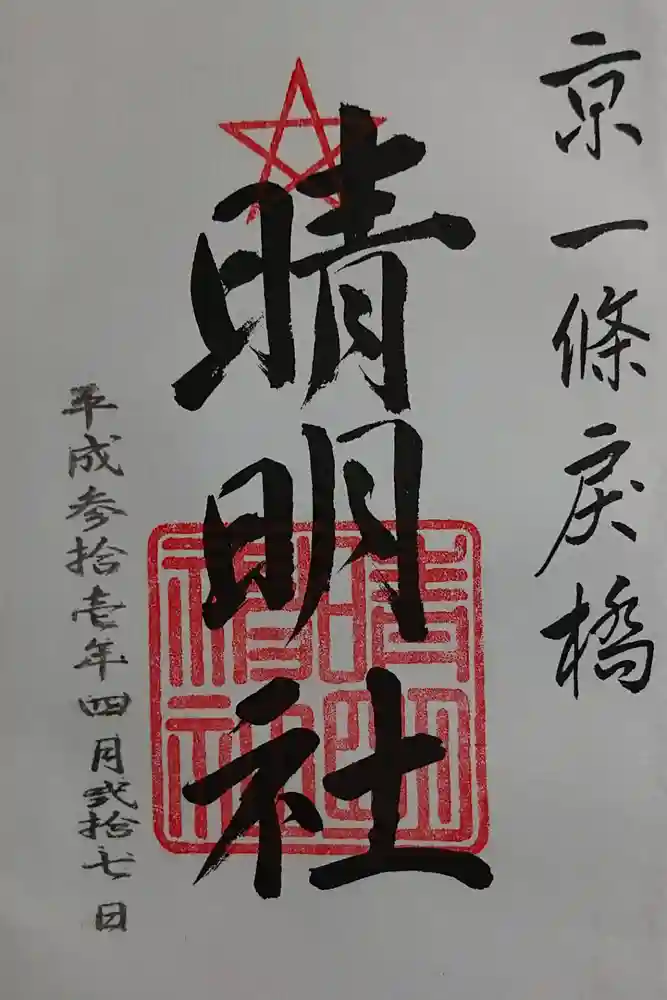 京一條戻橋
晴明社
平成参拾壱年四月弐拾七日
晴明
神社